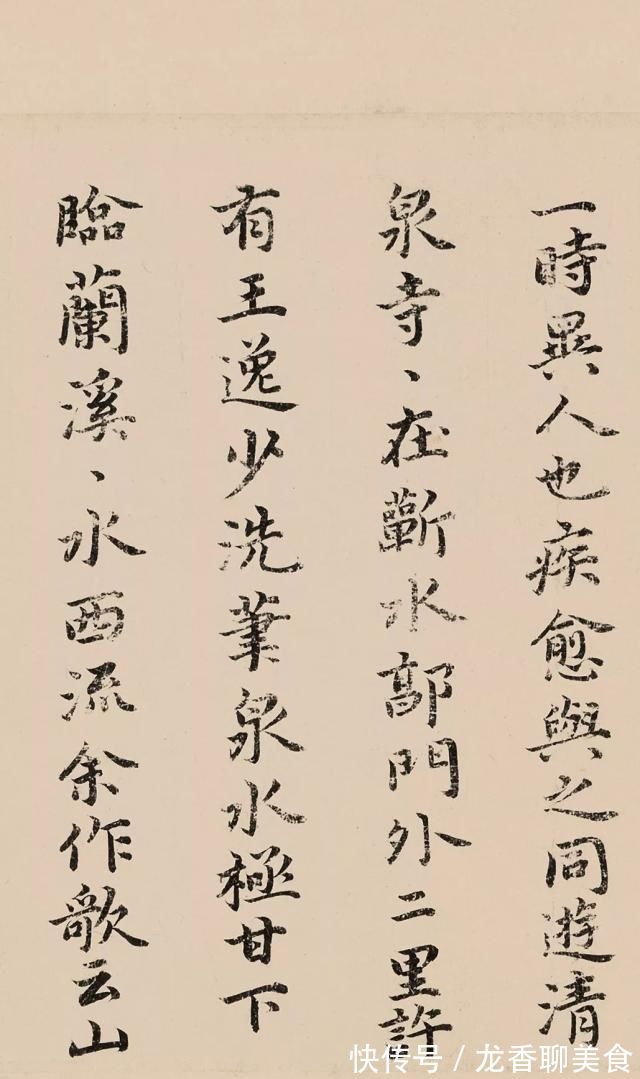 一時異人也疾愈與之同遊清
泉寺、在蘄水郭門外二里許
有王逸少洗筆泉水極甘下
臨蘭溪、水西流余作歌云山
快传号／龙香聊美食